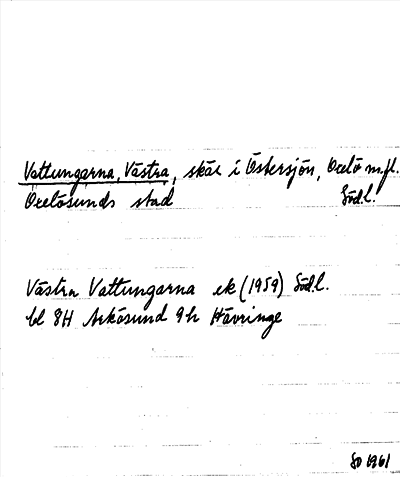 Vattungarna, Västra, skär i Östersjön, Oxelö m.fl.
Oxelösunds stad Södl.
Västra Vattungarna ek (1959) Södl.
bl 8H Arkösund 9h Hävringe
SO 1961